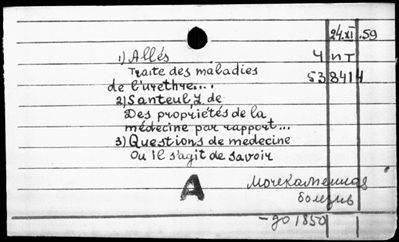 24.XI.59
1) Allés 4 ПТ
Traite des maladies 538414
de l'urethre....
2) Santeul, J de
Des propriétés de la
médecine par rapport...
3) Questions de medecine
Ou il s'agit de savoir
A Мочекаменная
болезнь
- до 1850